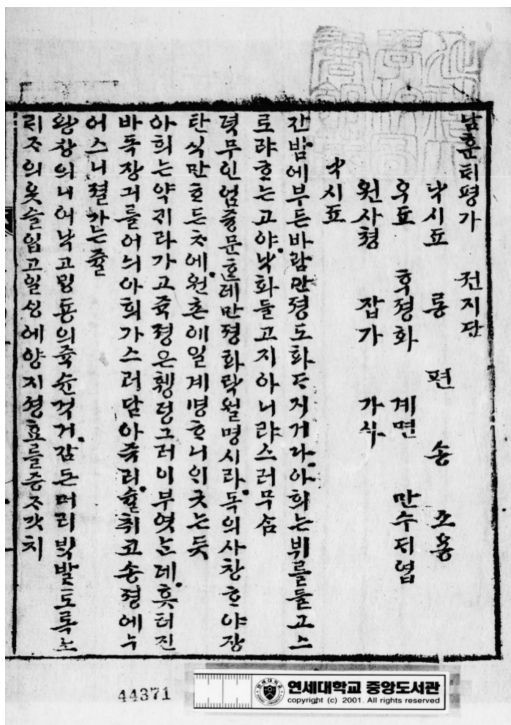 남훈ᄐᆡ평가 권지단
낙시됴 롱 편 송 소용
우됴 후졍화 계면 만수ᄃᆡ엽
원사쳥 잡가 가ᄉᆞ
낙시됴
간밤에부든바람만졍도화다지거다아희는뷔를들고스
로랴ᄒᆞ는고야낙화들고지아니랴스러무삼
젹무인엄즁문ᄒᆞᆫ데만졍화락월명시라독의사창ᄒᆞ야장
탄식만ᄒᆞ든ᄎᆞ에원촌에일계명ᄒᆞ니ᄋᆡᄭᅳᆫ는듯
아희는약ᄏᆡ라가고쥭졍은휑덩그러이부엿는데흣터진
바둑장긔를어의아희가스러담아쥬리슐ᄎᆔ코송졍에누
어스니졀가는쥴
왕상의니어낙고ᄆᆡᆼ동의쥭순걱거감든머리ᄇᆡᆨ발토록노
ᄅᆡᄌᆞ의옷슬입고일ᄉᆡᆼ에양지셩효를증ᄌᆞ갓치
44371
연세대학교 중앙도서관
copyright (c) 2001. All rights reserved